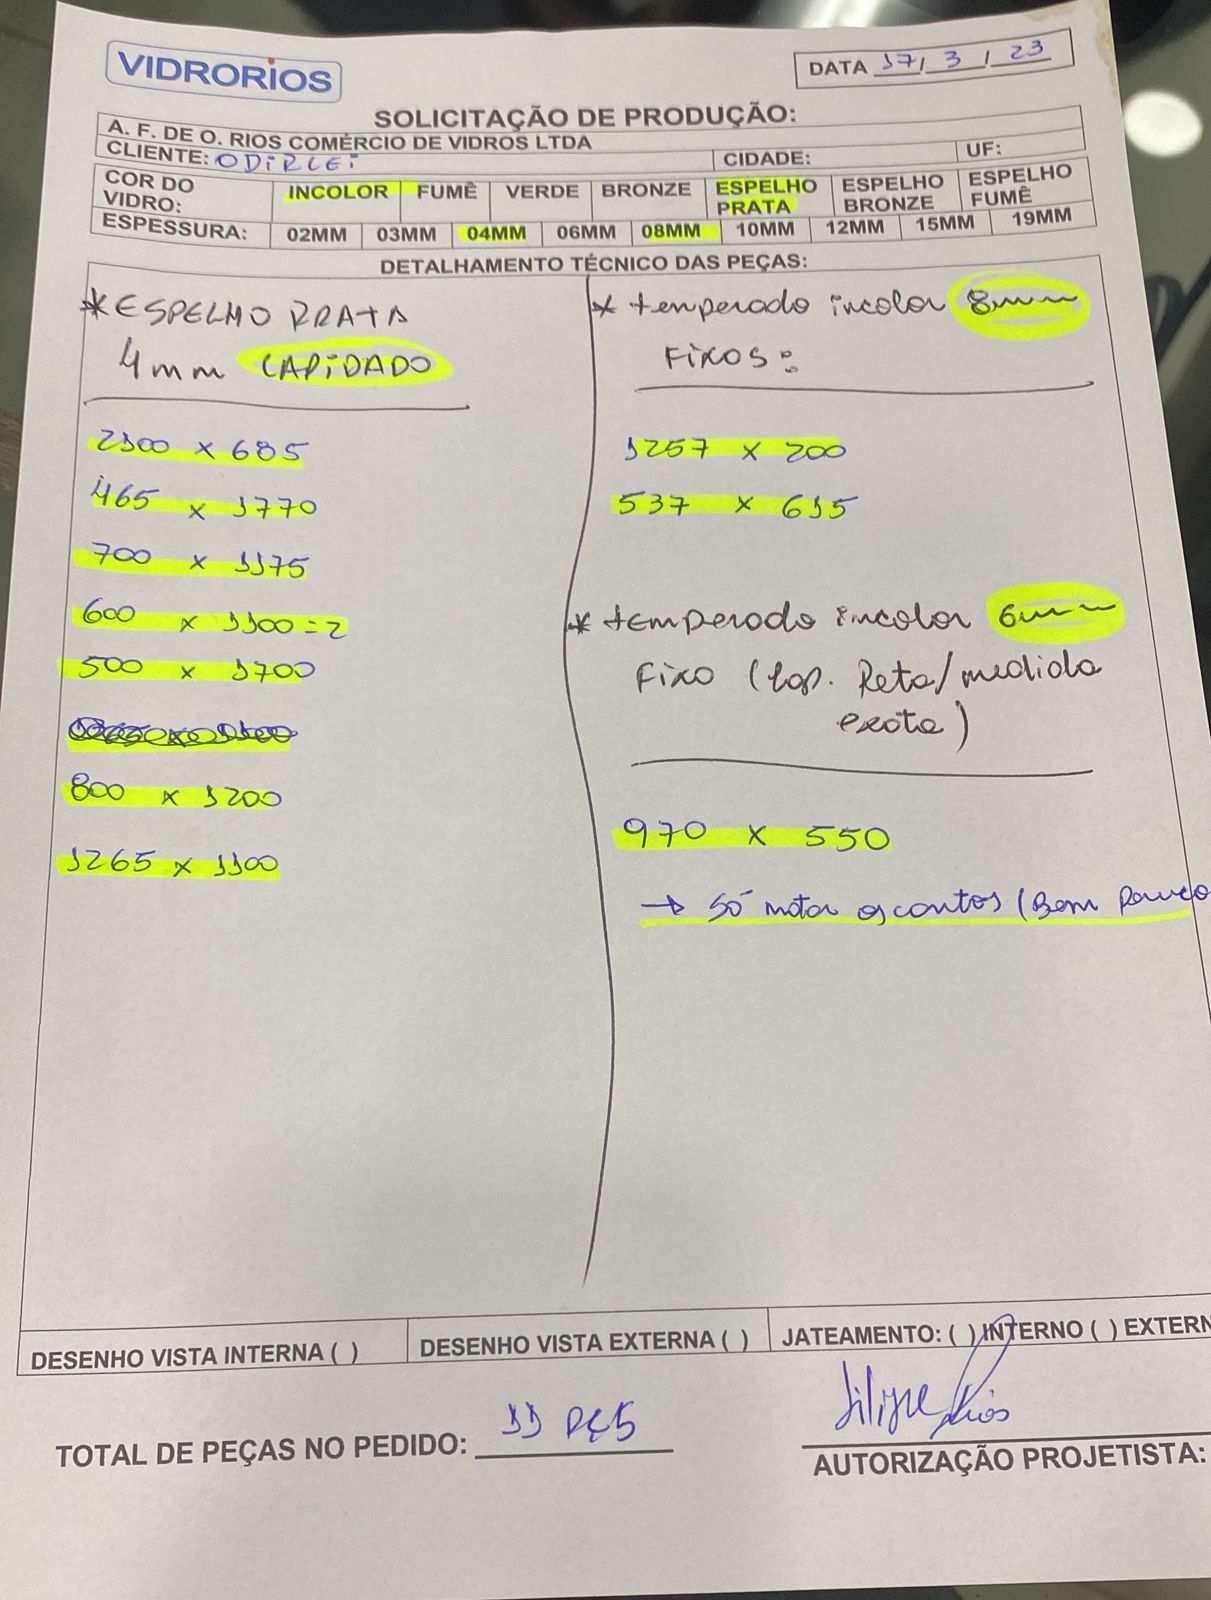 VIDRORIOS
DATA 17/ 3 / 23
SOLICITAÇÃO DE PRODUÇÃO:
A. F. DE O. RIOS COMÉRCIO DE VIDROS LTDA
CLIENTE: ODIRLEI CIDADE: UF:
COR DO VIDRO: INCOLOR FUMÊ VERDE BRONZE ESPELHO PRATA ESPELHO BRONZE ESPELHO FUMÊ
ESPESSURA: 02MM 03MM 04MM 06MM 08MM 10MM 12MM 15MM 19MM
DETALHAMENTO TÉCNICO DAS PEÇAS:
* ESPELHO PRATA
4mm LAPIDADO
2100 x 685
465 x 1770
700 x 1175
600 x 1100 = 2
500 x 1700
800 x 1200
1265 x 1100
* temperado incolor 8mm
FIXOS:
1257 x 200
537 x 615
* temperado incolor 6mm
FIXO (Lap. Reta/medida
exata)
970 x 550
→ Só matar os cantos (Bem Pouco
DESENHO VISTA INTERNA ( ) DESENHO VISTA EXTERNA ( ) JATEAMENTO: ( ) INTERNO ( ) EXTERN
TOTAL DE PEÇAS NO PEDIDO: 11 PÇS
Filipe Rios
AUTORIZAÇÃO PROJETISTA: